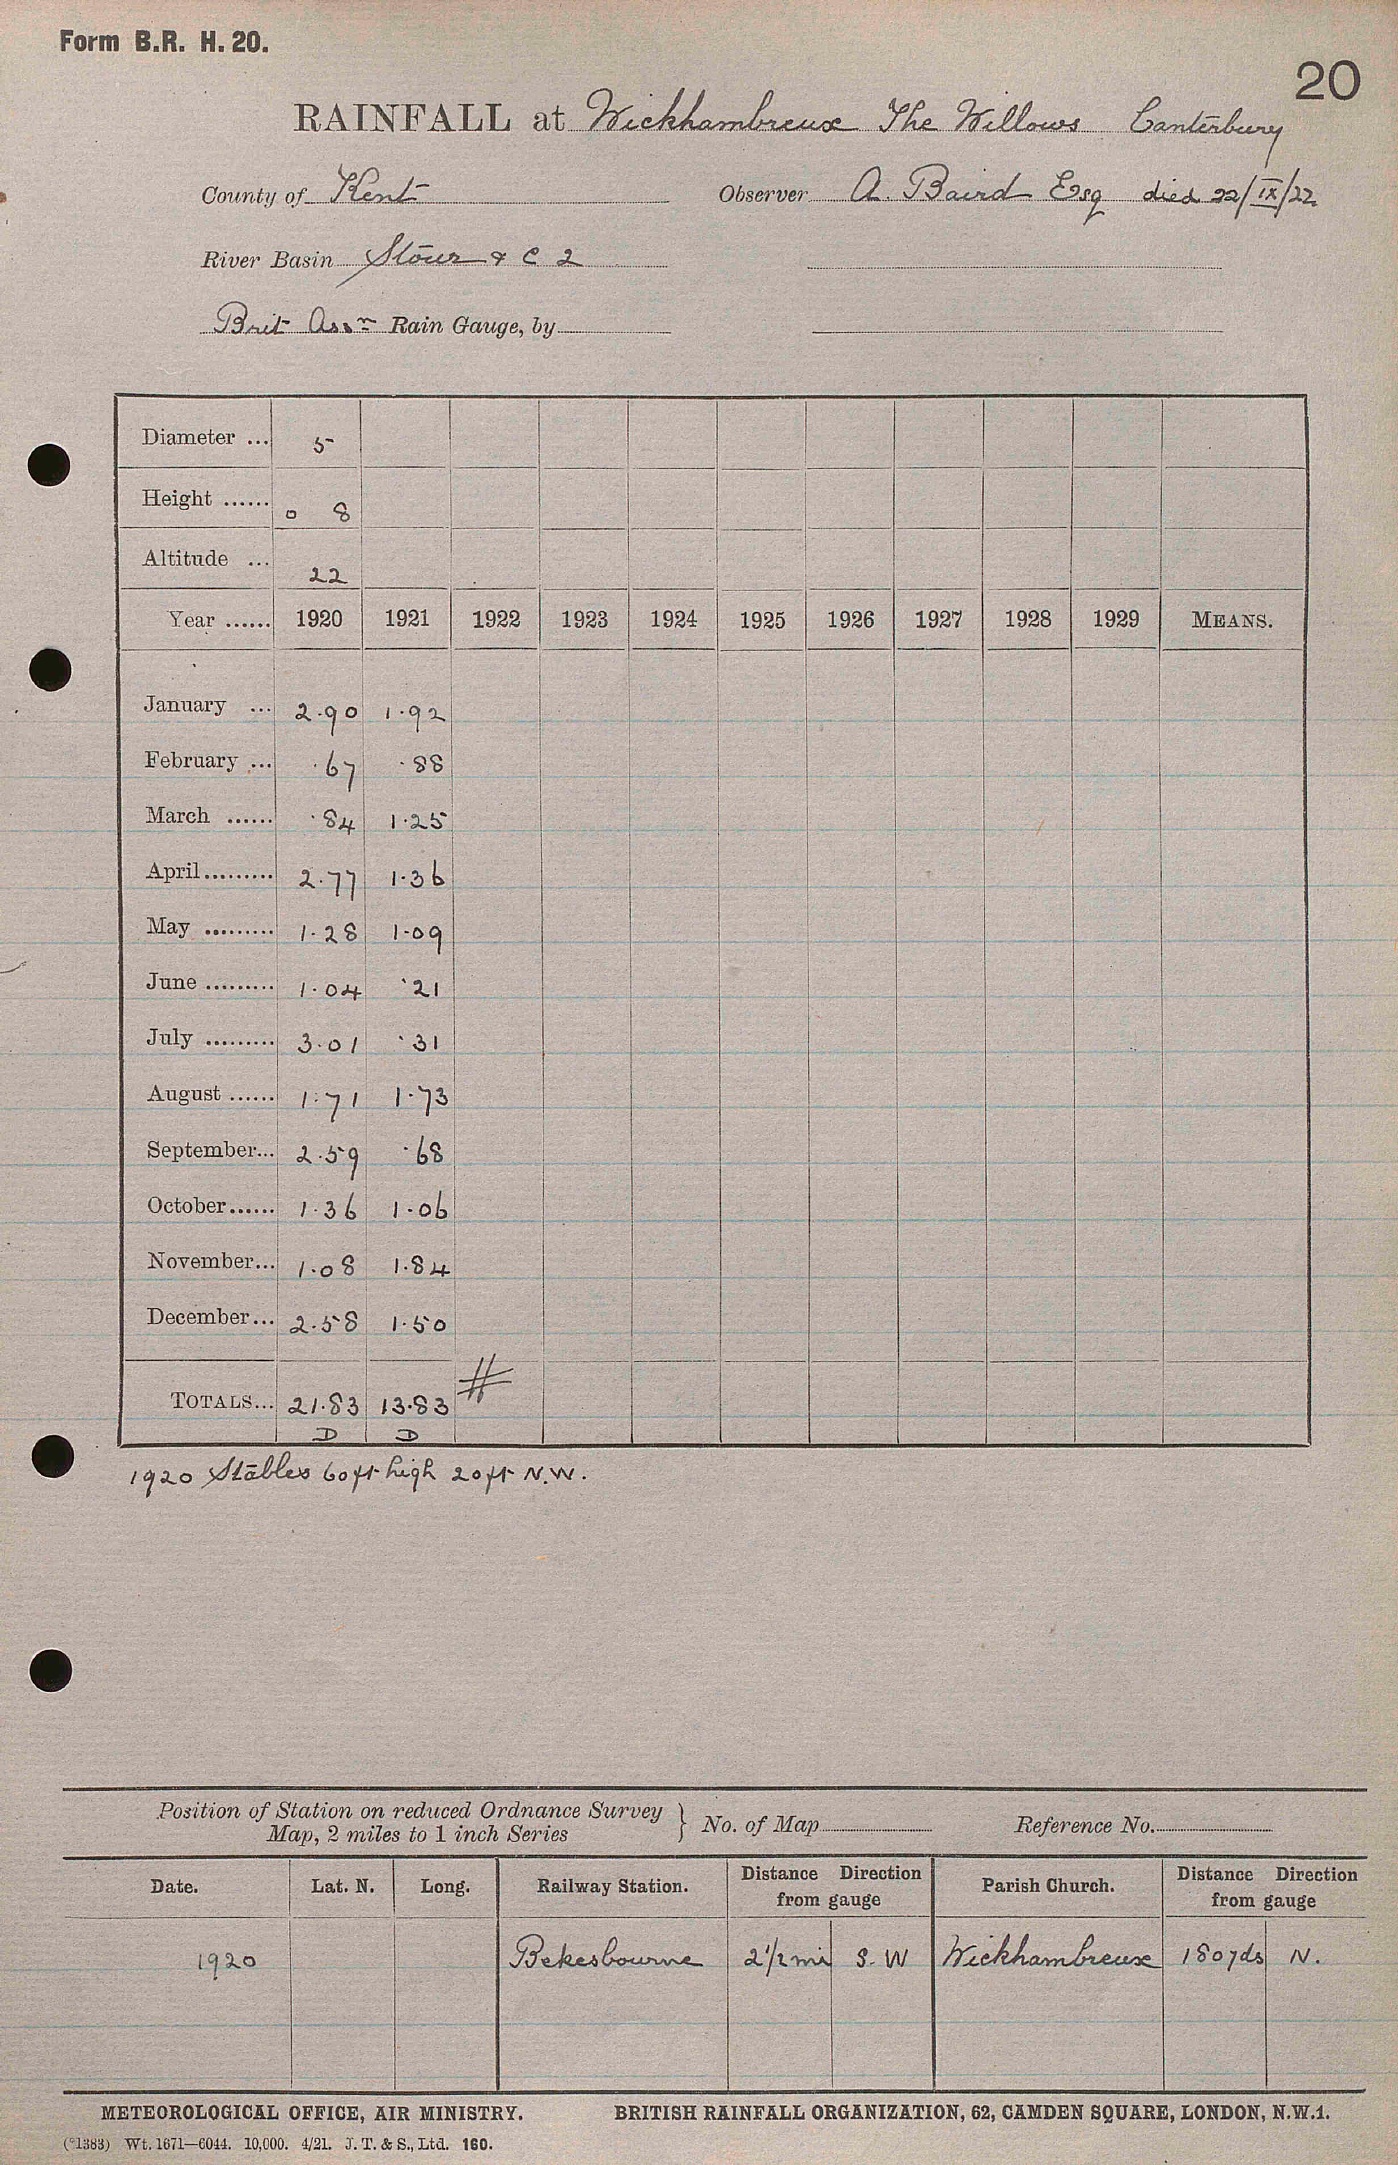 Form B.R. H. 20.
20
RAINFALL at Wickhambreux The Willows Canterbury
County of Kent Observer A. Baird Esq died 22/IX/22
River Basin Stour & C 2
Brit Assn Rain Gauge, by
Diameter ... 5
Height ...... 0 8
Altitude ... 22
Year ...... 1920 1921 1922 1923 1924 1925 1926 1927 1928 1929 MEANS.
January ... 2.90 1.92
February ... .67 .88
March ...... .84 1.25
April ......... 2.77 1.36
May ......... 1.28 1.09
June ......... 1.04 .21
July ......... 3.01 .31
August ...... 1.71 1.73
September... 2.59 .68
October...... 1.36 1.06
November... 1.08 1.84
December... 2.58 1.50
TOTALS... 21.83 13.83 #
D D
1920 Stables 60ft high 20ft N.W.
Position of Station on reduced Ordnance Survey
Map, 2 miles to 1 inch Series } No. of Map Reference No.
Date. Lat. N. Long. Railway Station. Distance Direction from gauge Parish Church. Distance Direction from gauge
1920 Bekesbourne 2 1/2 mi S. W Wickhambreux 180yds N.
METEOROLOGICAL OFFICE, AIR MINISTRY. BRITISH RAINFALL ORGANIZATION, 62, CAMDEN SQUARE, LONDON, N.W.1.
(*1383) Wt. 1671—6044. 10,000. 4/21. J. T. & S., Ltd. 160.